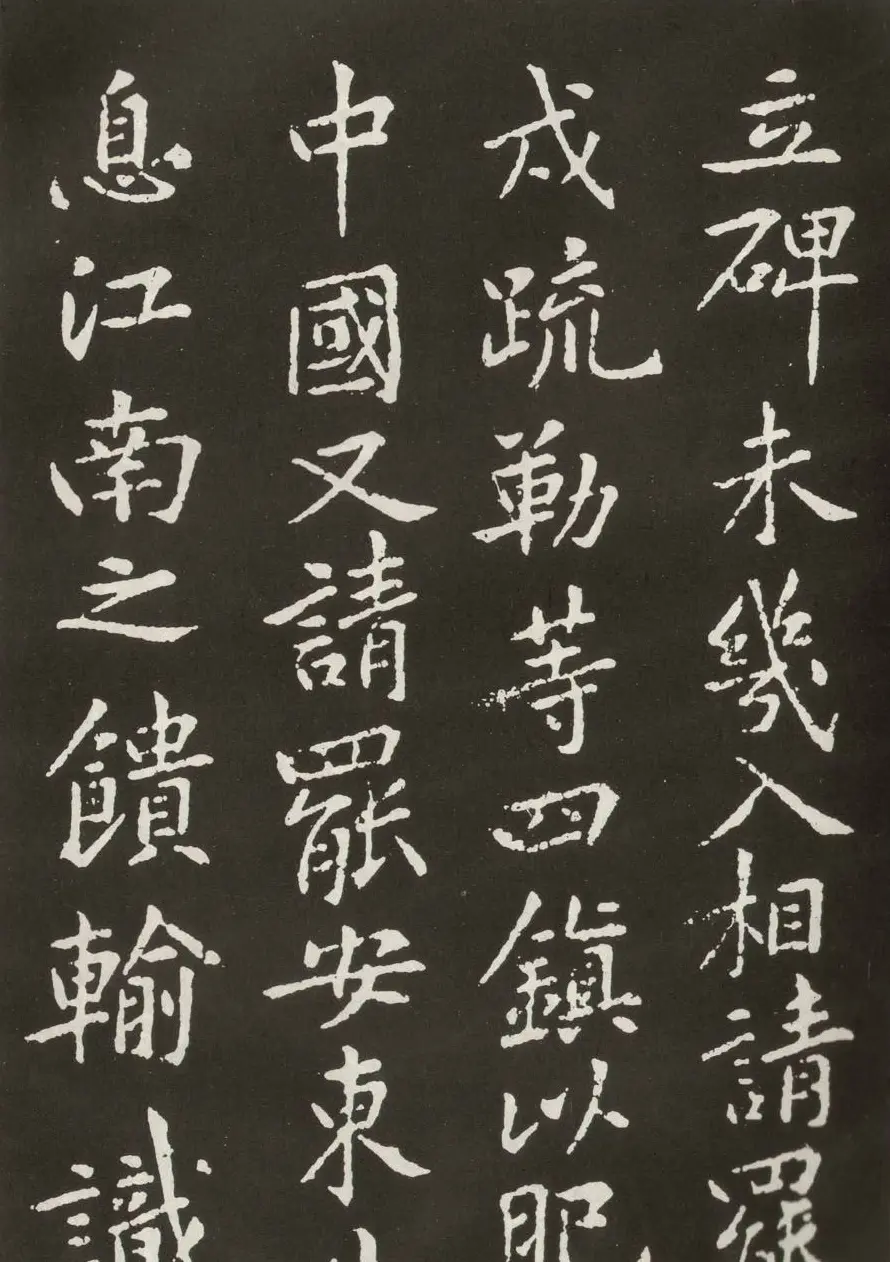 立碑未幾入相請羅
戍疏勒等四鎮以肥
中國又請罷安東
息江南之饋輸識